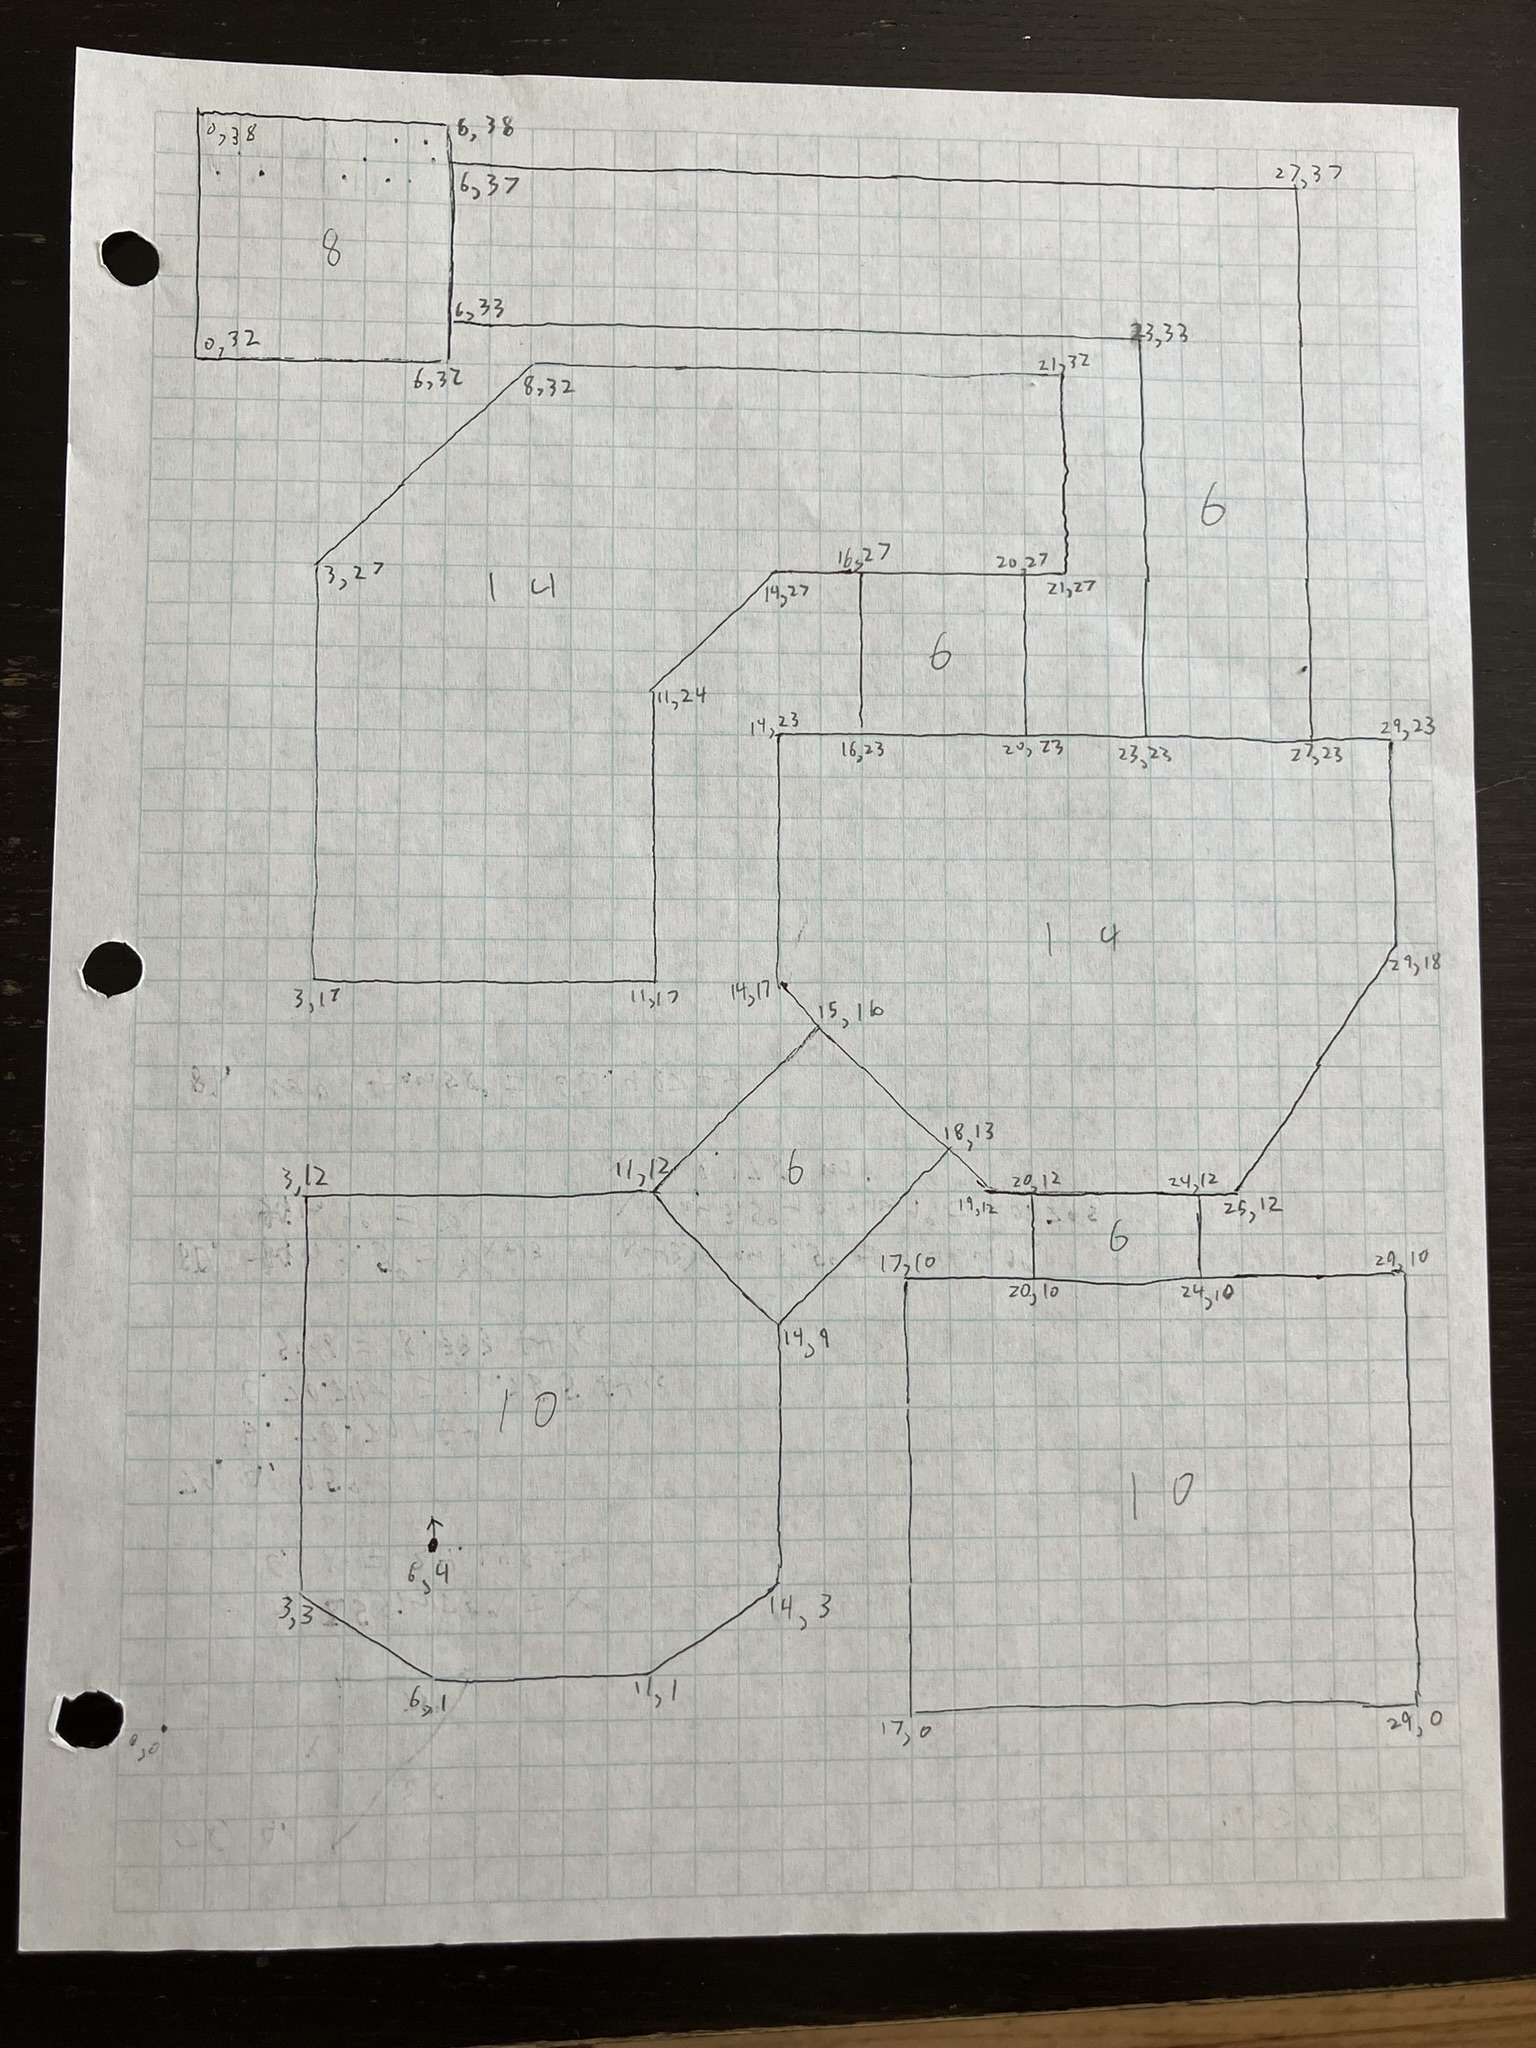 0,38
6,38
6,37
27,37
8
6,33
23,33
0,32
6,32
8,32
21,32
6
3,27
14
14,27
16,27
20,27
21,27
6
11,24
14,23
16,23
20,23
23,23
27,23
29,23
14
29,18
3,17
11,17
14,17
15,16
18,13
6
3,12
11,12
19,12
20,12
24,12
25,12
6
17,10
20,10
24,10
29,10
14,9
10
10
6,4
3,3
14,3
6,1
11,1
0,0
17,0
29,0